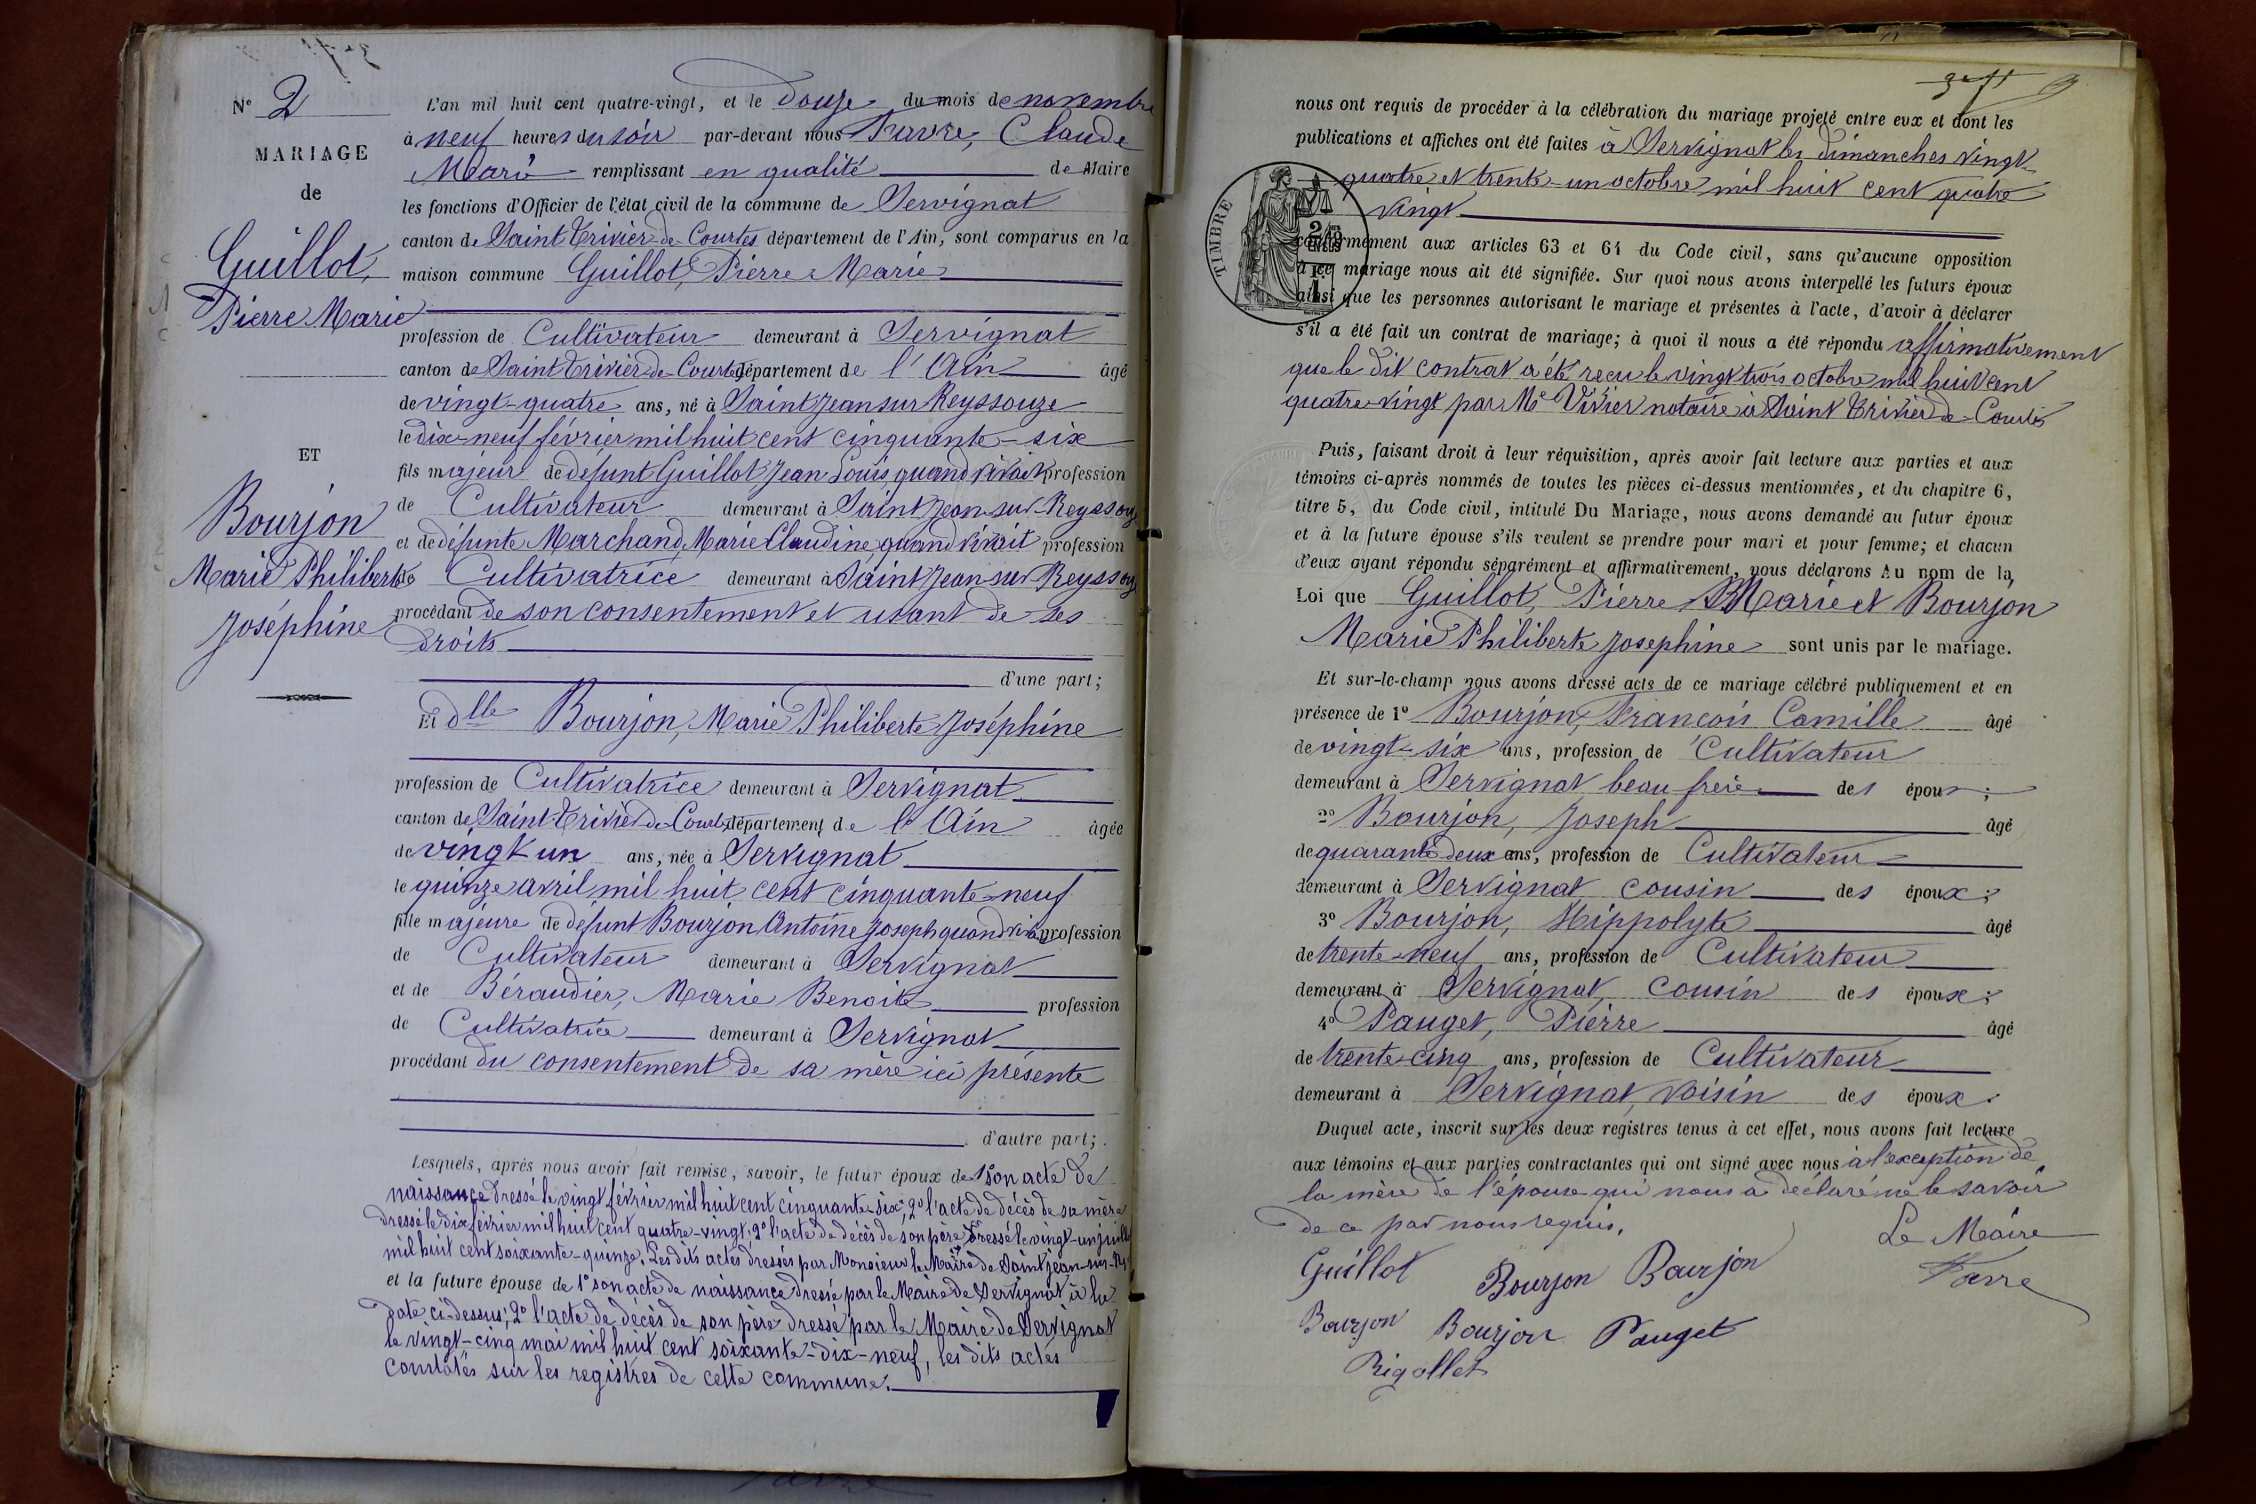 N° 2
MARIAGE
de
Guillot,
Pierre Marie
ET
Bourjon
Marie Philiberte
Joséphine
L'an mil huit cent quatre-vingt, et le douze du mois de novembre
à neuf heures du soir par-devant nous Favre, Claude
Marie remplissant en qualité de Maire
les fonctions d'Officier de l'état civil de la commune de Servignat
canton de Saint Trivier-de-Courtes département de l'Ain, sont comparus en la
maison commune Guillot, Pierre Marie
profession de Cultivateur demeurant à Servignat
canton de Saint Trivier-de-Courtes département de l'Ain âgé
de vingt-quatre ans, né à Saint Jean sur Reyssouze
le dix-neuf février mil huit cent cinquante-six
fils majeur de défunt Guillot Jean Louis, quand vivait profession
de Cultivateur demeurant à Saint Jean-sur-Reyssouze
et de défunte Marchand, Marie Claudine, quand vivait profession
de Cultivatrice demeurant à Saint Jean sur Reyssouze
procédant de son consentement et usant de ses
droits
d'une part;
Et dlle Bourjon, Marie Philiberte Joséphine
profession de Cultivatrice demeurant à Servignat
canton de Saint-Trivier-de-Courtes département de l'Ain âgée
de vingt un ans, née à Servignat
le quinze avril mil huit cent cinquante-neuf
fille majeure de défunt Bourjon Antoine Joseph quand vivait profession
de Cultivateur demeurant à Servignat
et de Béraudier, Marie Benoite profession
de Cultivatrice demeurant à Servignat
procédant du consentement de sa mère ici présente
d'autre part;
Lesquels, après nous avoir fait remise, savoir, le futur époux de 1° son acte de
naissance dressé le vingt février mil huit cent cinquante-six; 2° l'acte de décès de sa mère
dressé le dix février mil huit cent quatre-vingt; 2° l'acte de décès de son père dressé le vingt-un juillet
mil huit cent soixante-quinze. Les dits actes dressés par Monsieur le Maire de Saint jean-sur-Rey
et la future épouse de 1° son acte de naissance dressé par le Maire de Servignat à la
date ci-dessus; 2° l'acte de décès de son père dressé par le Maire de Servignat
le vingt-cinq mai mil huit cent soixante-dix-neuf, les dits actes
constatés sur les registres de cette commune.
nous ont requis de procéder à la célébration du mariage projeté entre eux et dont les
publications et affiches ont été faites à Servignat les dimanches vingt-
quatre et trente-un octobre mil huit cent quatre
vingt
TIMBRE
conformément aux articles 63 et 64 du Code civil, sans qu'aucune opposition
à ce mariage nous ait été signifiée. Sur quoi nous avons interpellé les futurs époux
ainsi que les personnes autorisant le mariage et présentes à l'acte, d'avoir à déclarer
s'il a été fait un contrat de mariage; à quoi il nous a été répondu affirmativement
que le dit contrat a été reçu le vingt trois octobre mil huit cent
quatre-vingt par Me Vivier notaire à Saint Trivier-de-Courtes
Puis, faisant droit à leur réquisition, après avoir fait lecture aux parties et aux
témoins ci-après nommés de toutes les pièces ci-dessus mentionnées, et du chapitre 6,
titre 5, du Code civil, intitulé Du Mariage, nous avons demandé au futur époux
et à la future épouse s'ils veulent se prendre pour mari et pour femme; et chacun
d'eux ayant répondu séparément et affirmativement, nous déclarons Au nom de la
Loi que Guillot, Pierre Marie et Bourjon
Marie Philiberte Josephine sont unis par le mariage.
Et sur-le-champ nous avons dressé acte de ce mariage célébré publiquement et en
présence de 1° Bourjon, François Camille âgé
de vingt-six ans, profession de Cultivateur
demeurant à Servignat beau frère des époux;
2° Bourjon, Joseph âgé
de quarante deux ans, profession de Cultivateur
demeurant à Servignat cousin des époux;
3° Bourjon, Hippolyte âgé
de trente-neuf ans, profession de Cultivateur
demeurant à Servignat, cousin des époux;
4° Pauget, Pierre âgé
de trente-cinq ans, profession de Cultivateur
demeurant à Servignat, voisin des époux.
Duquel acte, inscrit sur les deux registres tenus à cet effet, nous avons fait lecture
aux témoins et aux parties contractantes qui ont signé avec nous à l'exception de
la mère de l'épouse qui nous a déclaré ne le savoir
de ce par nous requis.
Le Maire
Guillot Bourjon Bourjon Favre
Bourjon Bourjon Pauget
Rigollet